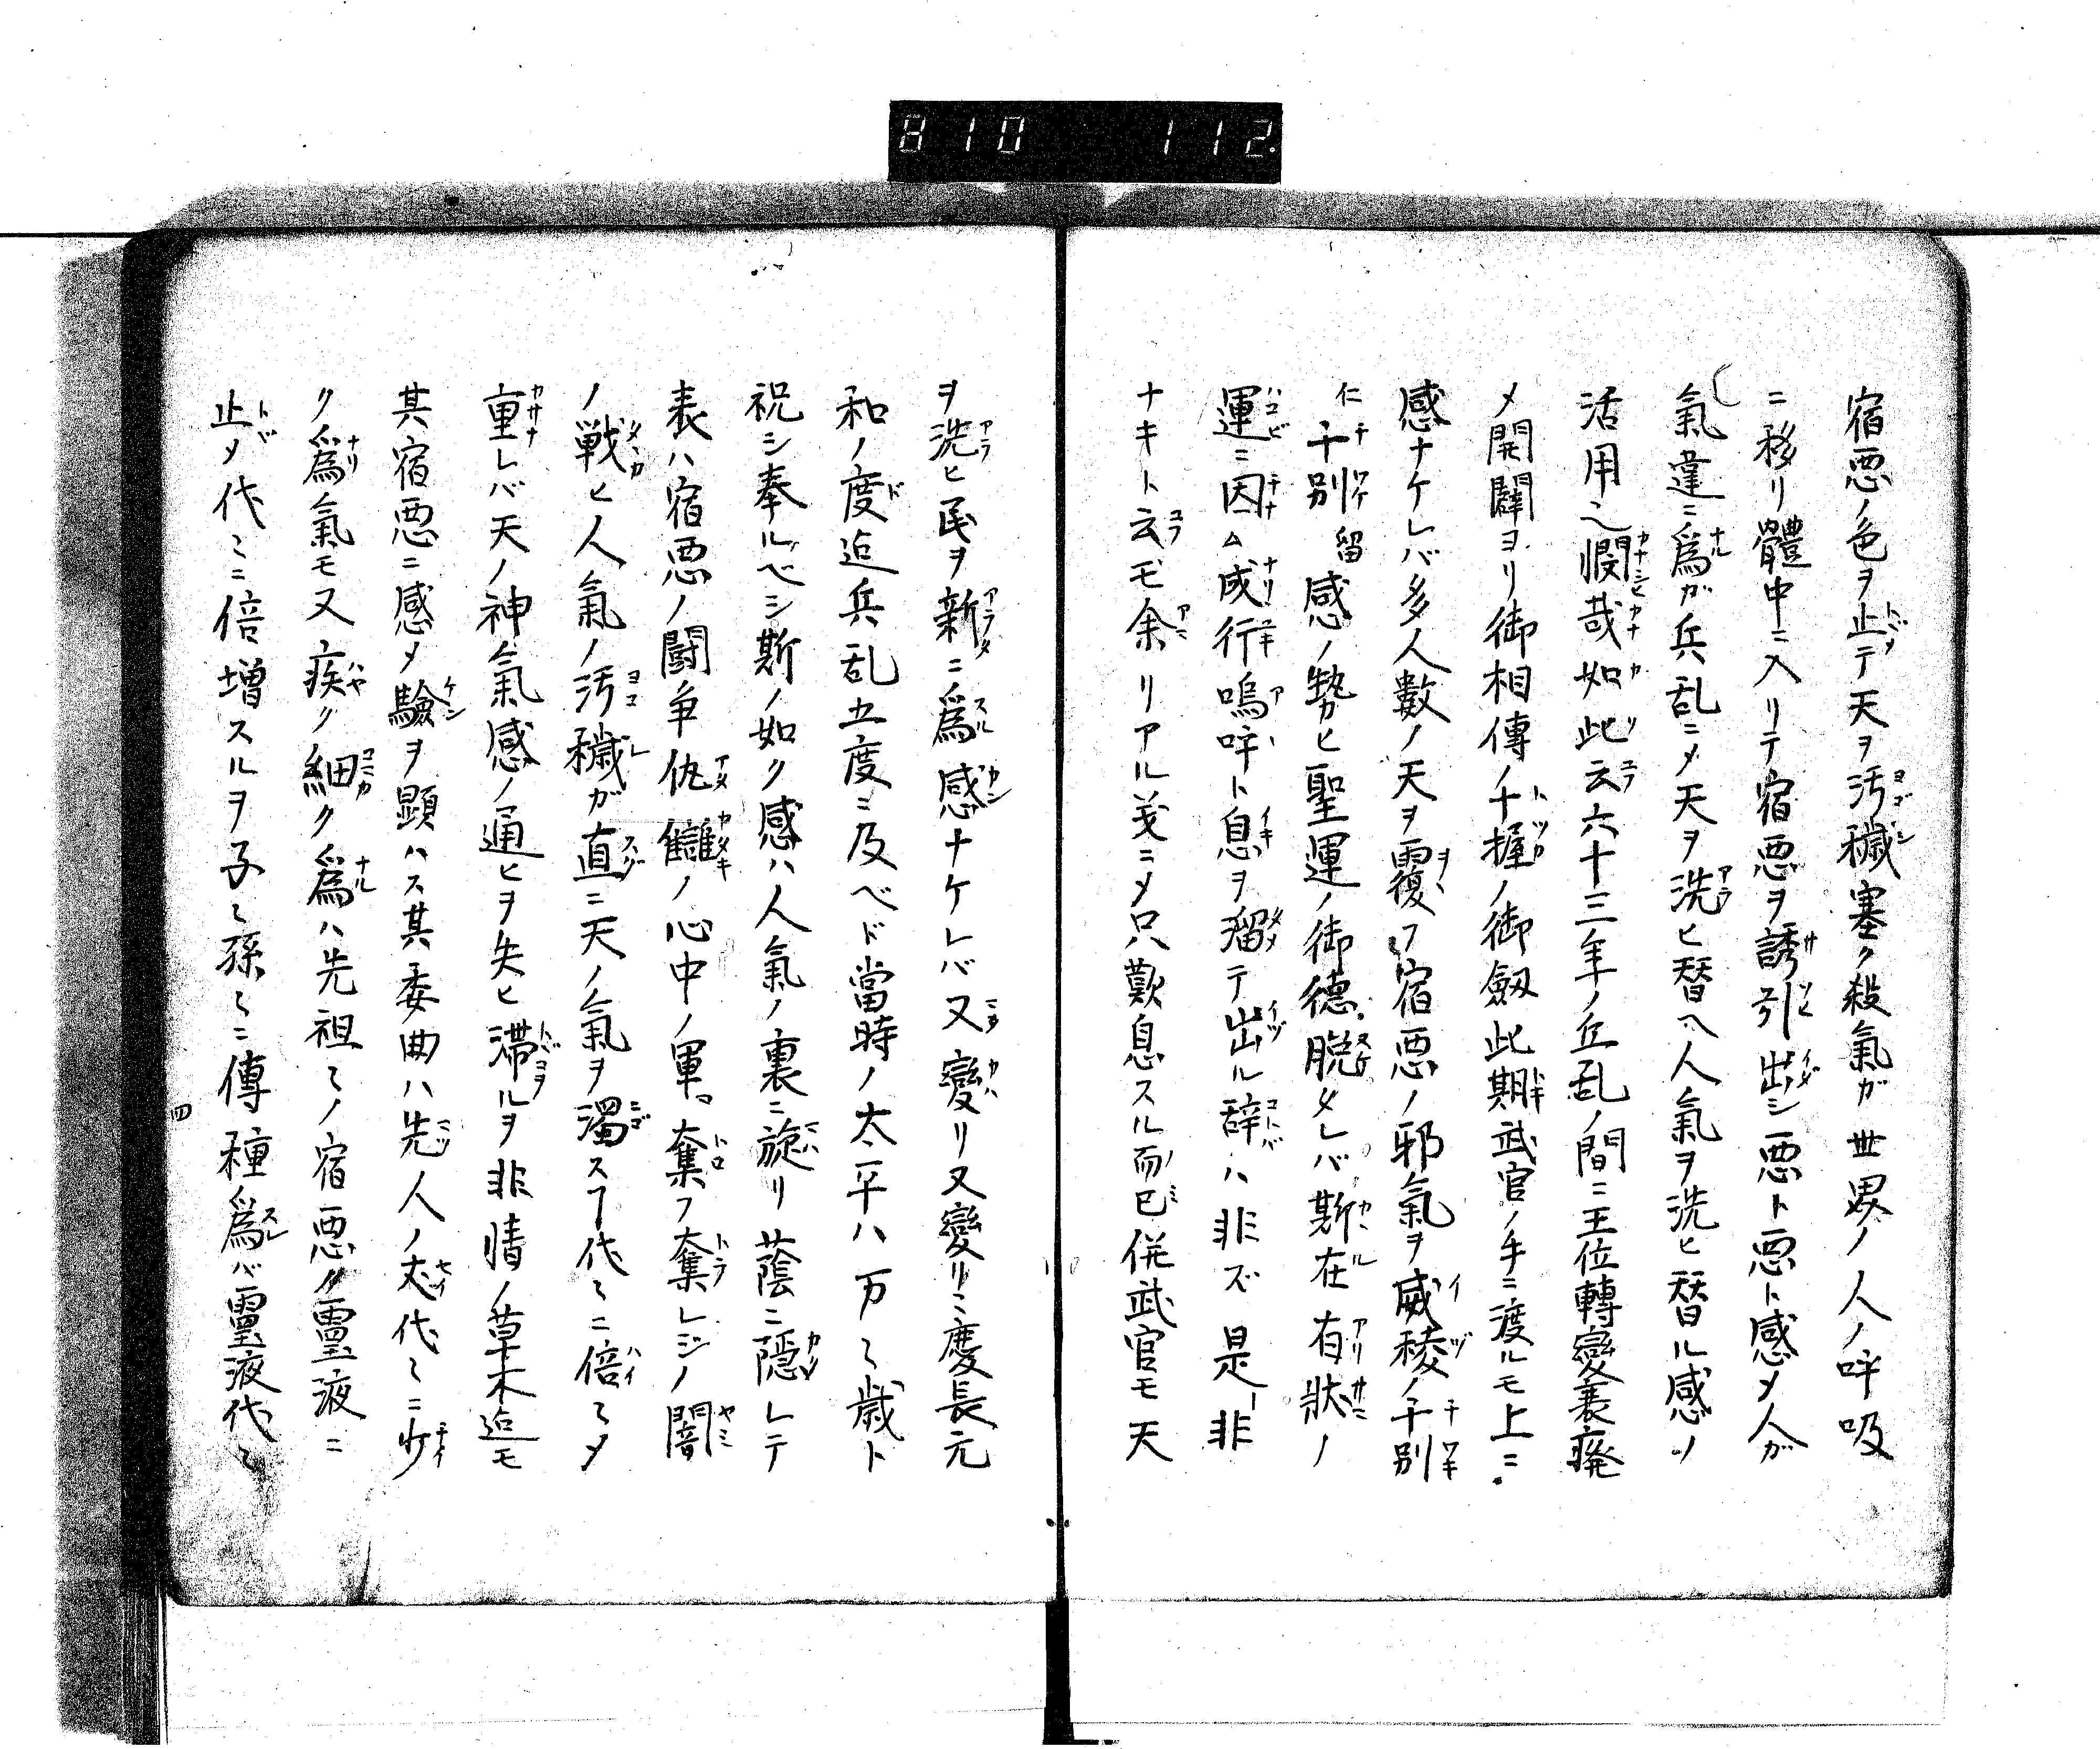 810 112.
宿悪ノ色ヲ止テ天ヲ汚穢塞ク殺氣ガ世界ノ人ノ呼吸
ニ移リ體中ニ入リテ宿悪ヲ誘引出シ悪ト悪ト感メ人ガ
氣違ニ爲ガ兵乱ニメ天ヲ洗ヒ替ヘ人氣ヲ洗ヒ替ル感ノ
活用之憫哉如此云六十三年ノ兵乱ノ間ニ王位轉變衰癈
メ開闢ヨリ御相傳ノ十握ノ御劔此期武官ノ手ニ渡ルモ上ニ
感ナケレバ多人数ノ天ヲ覆フ宿悪ノ邪氣ヲ威稜ノ千別
仁千別留感ノ勢ヒ聖運ノ御德脱メレバ斯在有狀ノ
運ニ因ム成行嗚呼ト息ヲ溜テ出ル辞ハ非ズ是非
ナキト云モ余リアル義ニメ只歎息スル而已併武官モ天
ヲ洗ヒ民ヲ新ニ爲感ナケレバ又變リ又變リニ慶長元
和ノ度迠兵乱五度ニ及ベド當時ノ太平ハ万〻歳ト
祝シ奉ルベシ斯ノ如ク感ハ人氣ノ裏ニ旋リ蔭ニ隠レテ
表ハ宿悪ノ闘争仇讎ノ心中ノ軍奪フ奪レジノ闇
ノ戦ヒ人氣ノ汚穢ガ直ニ天ノ氣ヲ濁スヿ代〻ニ倍〻メ
重レバ天ノ神氣感ノ通ヒヲ失ヒ滞ルヲ非情ノ草木迠モ
其宿悪ニ感メ驗ヲ顕ハス其委曲ハ先人ノ𠀋代〻ニ少
ク爲氣モ又疾ク細ク爲ハ先祖〻ノ宿悪ク靈液ニ
止メ代〻ニ倍増スルヲ子〻孫〻ニ傳種爲バ靈液代〻
四